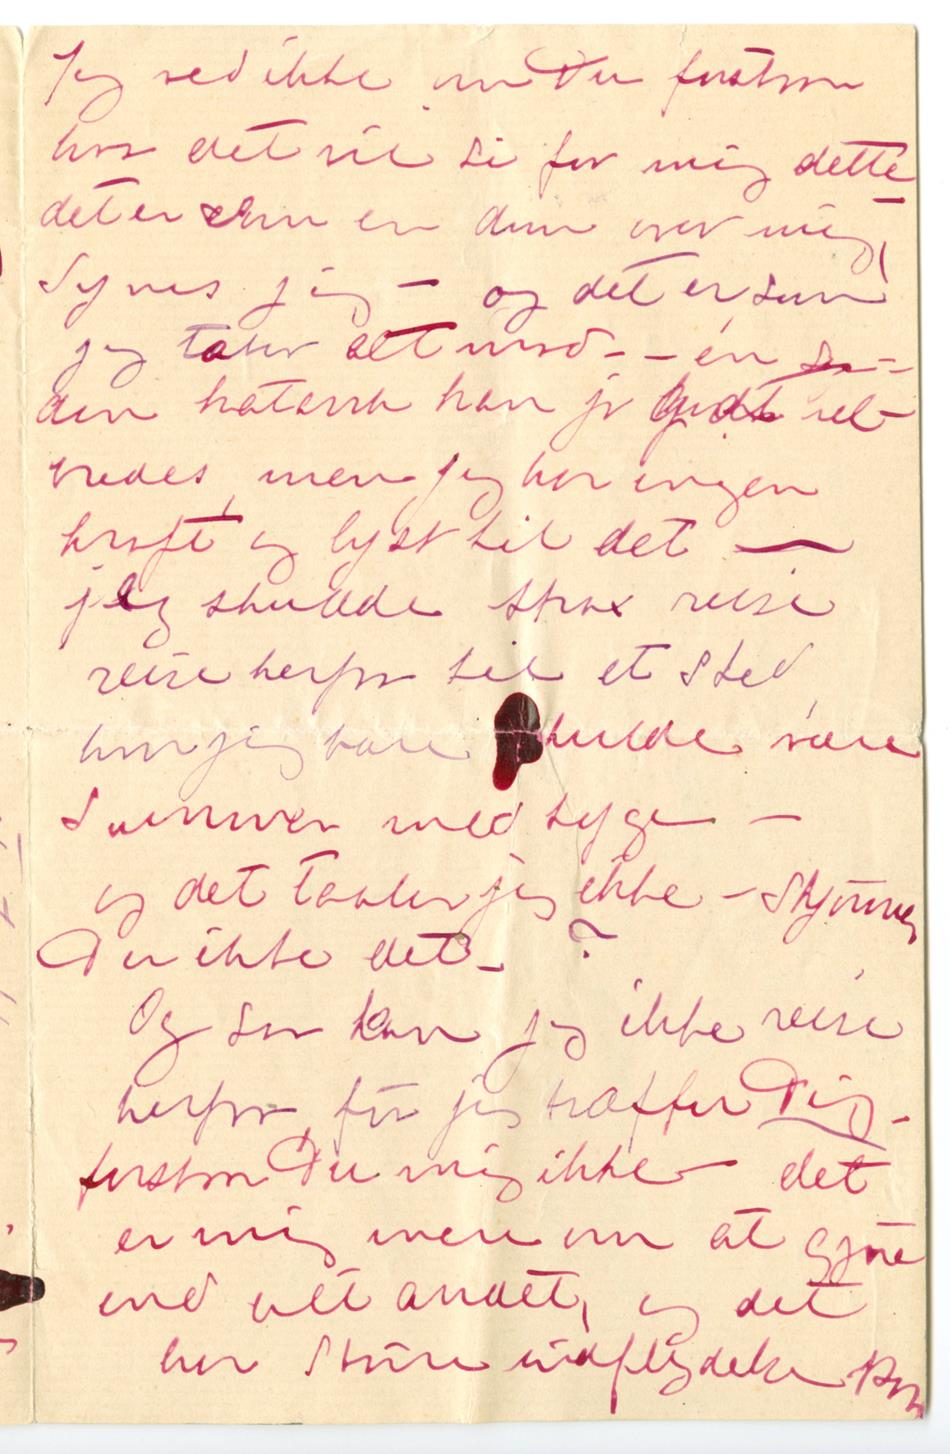 Jeg ved ikke om Du forstaar
hva det vil si for mig dette
det er som en dom over mig,
Synes jeg – og det er som
jeg taber alt mod – – én
den katarrh kan jo godt vel-
bredes, men jeg har ingen
kraft og lyst til det —
jeg skulde strax reise
reise herfra til et sted
hvor jeg bare skulde være
sammen med syge –
og det taaler jeg ikke – Skjønner
Du ikke det – ?
Og saa kan jeg ikke reise
herfra før jeg træffer Dig –
forstaar Du mig ikke – det
er mig mere om at gjøre
end alt andet, og det
har større indflydelse